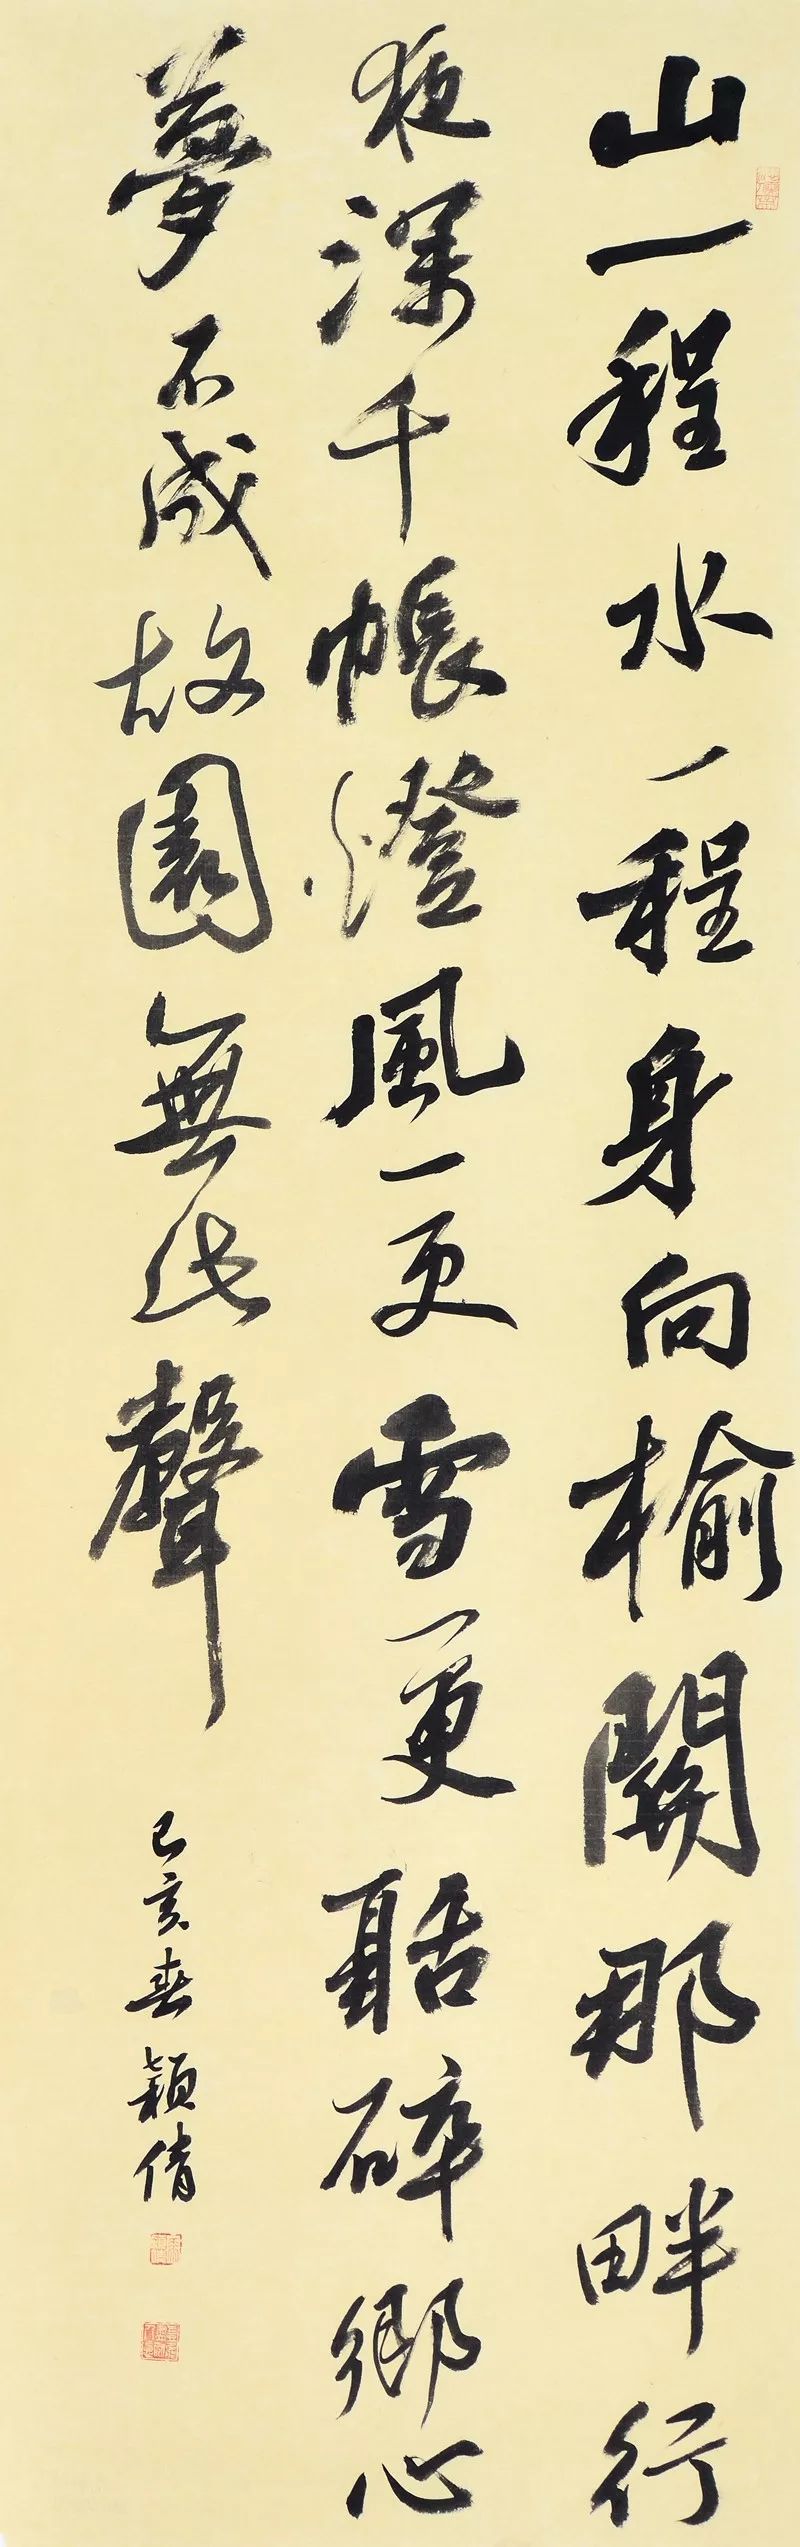 山一程水一程身向榆關那畔行
夜深千帳燈風一更雪一更聒碎鄉心
夢不成故園無此聲
己亥春穎倩